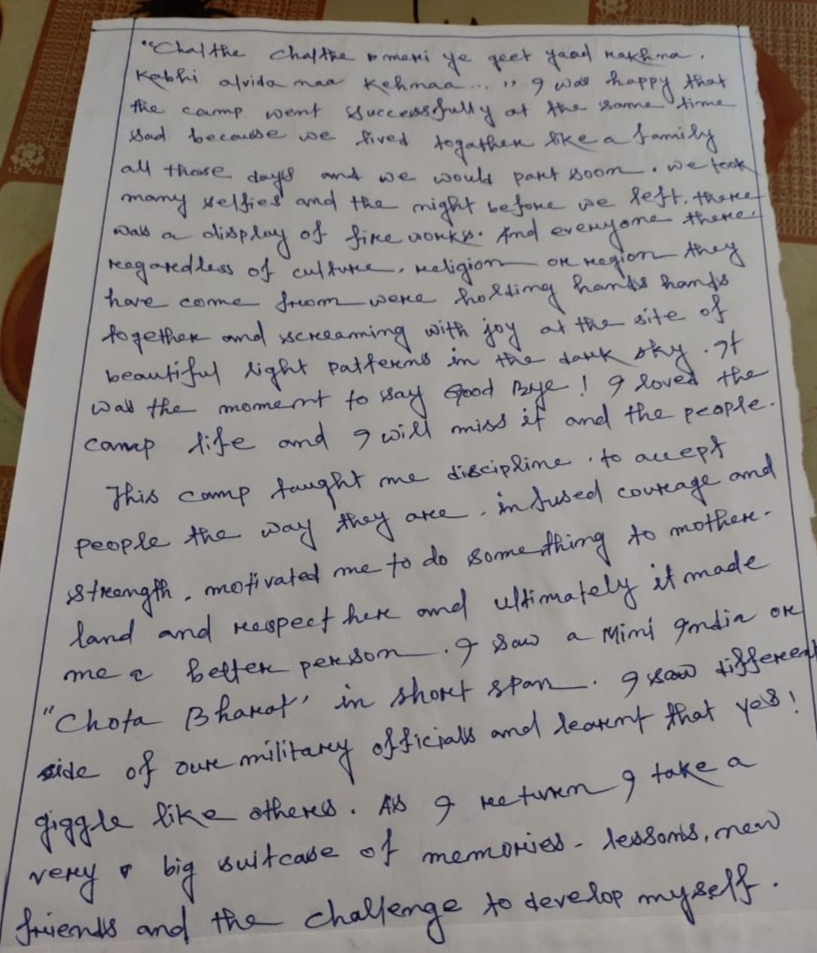 "Chalthe Chalthe meri ye geet yaad rakhna.
Kabhi alvida naa Kehnaa..." I was happy that
the camp went successfully at the same time
sad because we lived togather like a family
all those days and we would part soon. we took
many selfies and the night before we left. there
was a display of fire works. And everyone there
regaredless of culture, religion or region they
have come from were holding hands hands
together and screaming with joy at the site of
beautiful light patterns in the dark sky. It
was the moment to say Good Bye! I loved the
camp life and I will miss it and the people.
This camp taught me discipline, to accept
people the way they are, infused courage and
strength, motivated me to do something to mother-
land and respect here and ultimately it made
me a better person. I saw a Mini India or
"Chota Bharat' in short span. I saw different
side of our military officials and learnt that yes!
giggle like others. As I return I take a
very big suitcase of memories - lessons, new
friends and the challenge to develop myself.